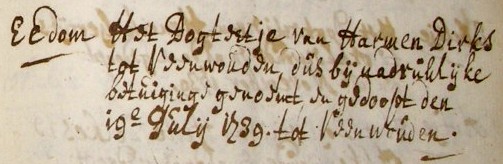 EEdom Het Dogtertje van Harmen Dirks
tot Veenwouden, dus bij nadruklijke
betuiginge genoemt en gedoopt den
19e Julij 1739. tot Veenwouden.